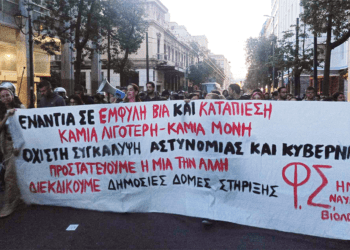 ΕΝΑΝΤΙΑ ΣΕ ΕΜΦΥΛΗ ΒΙΑ ΚΑΙ ΚΑΤΑΠΙΕΣΗ
ΚΑΜΙΑ ΛΙΓΟΤΕΡΗ-ΚΑΜΙΑ ΜΟΝΗ
ΟΧΙ ΣΤΗ ΣΥΓΚΑΛΥΨΗ ΑΣΤΥΝΟΜΙΑΣ ΚΑΙ ΚΥΒΕΡΝ
ΠΡΟΣΤΑΤΕΥΟΥΜΕ Η ΜΙΑ ΤΗΝ ΑΛΛΗ
ΔΙΕΚΔΙΚΟΥΜΕ ΔΗΜΟΣΙΕΣ ΔΟΜΕΣ ΣΤΗΡΙΞΗΣ
Φ.Σ
ΗΜ
ΝΑΥ
ΒΙΟΛΟ